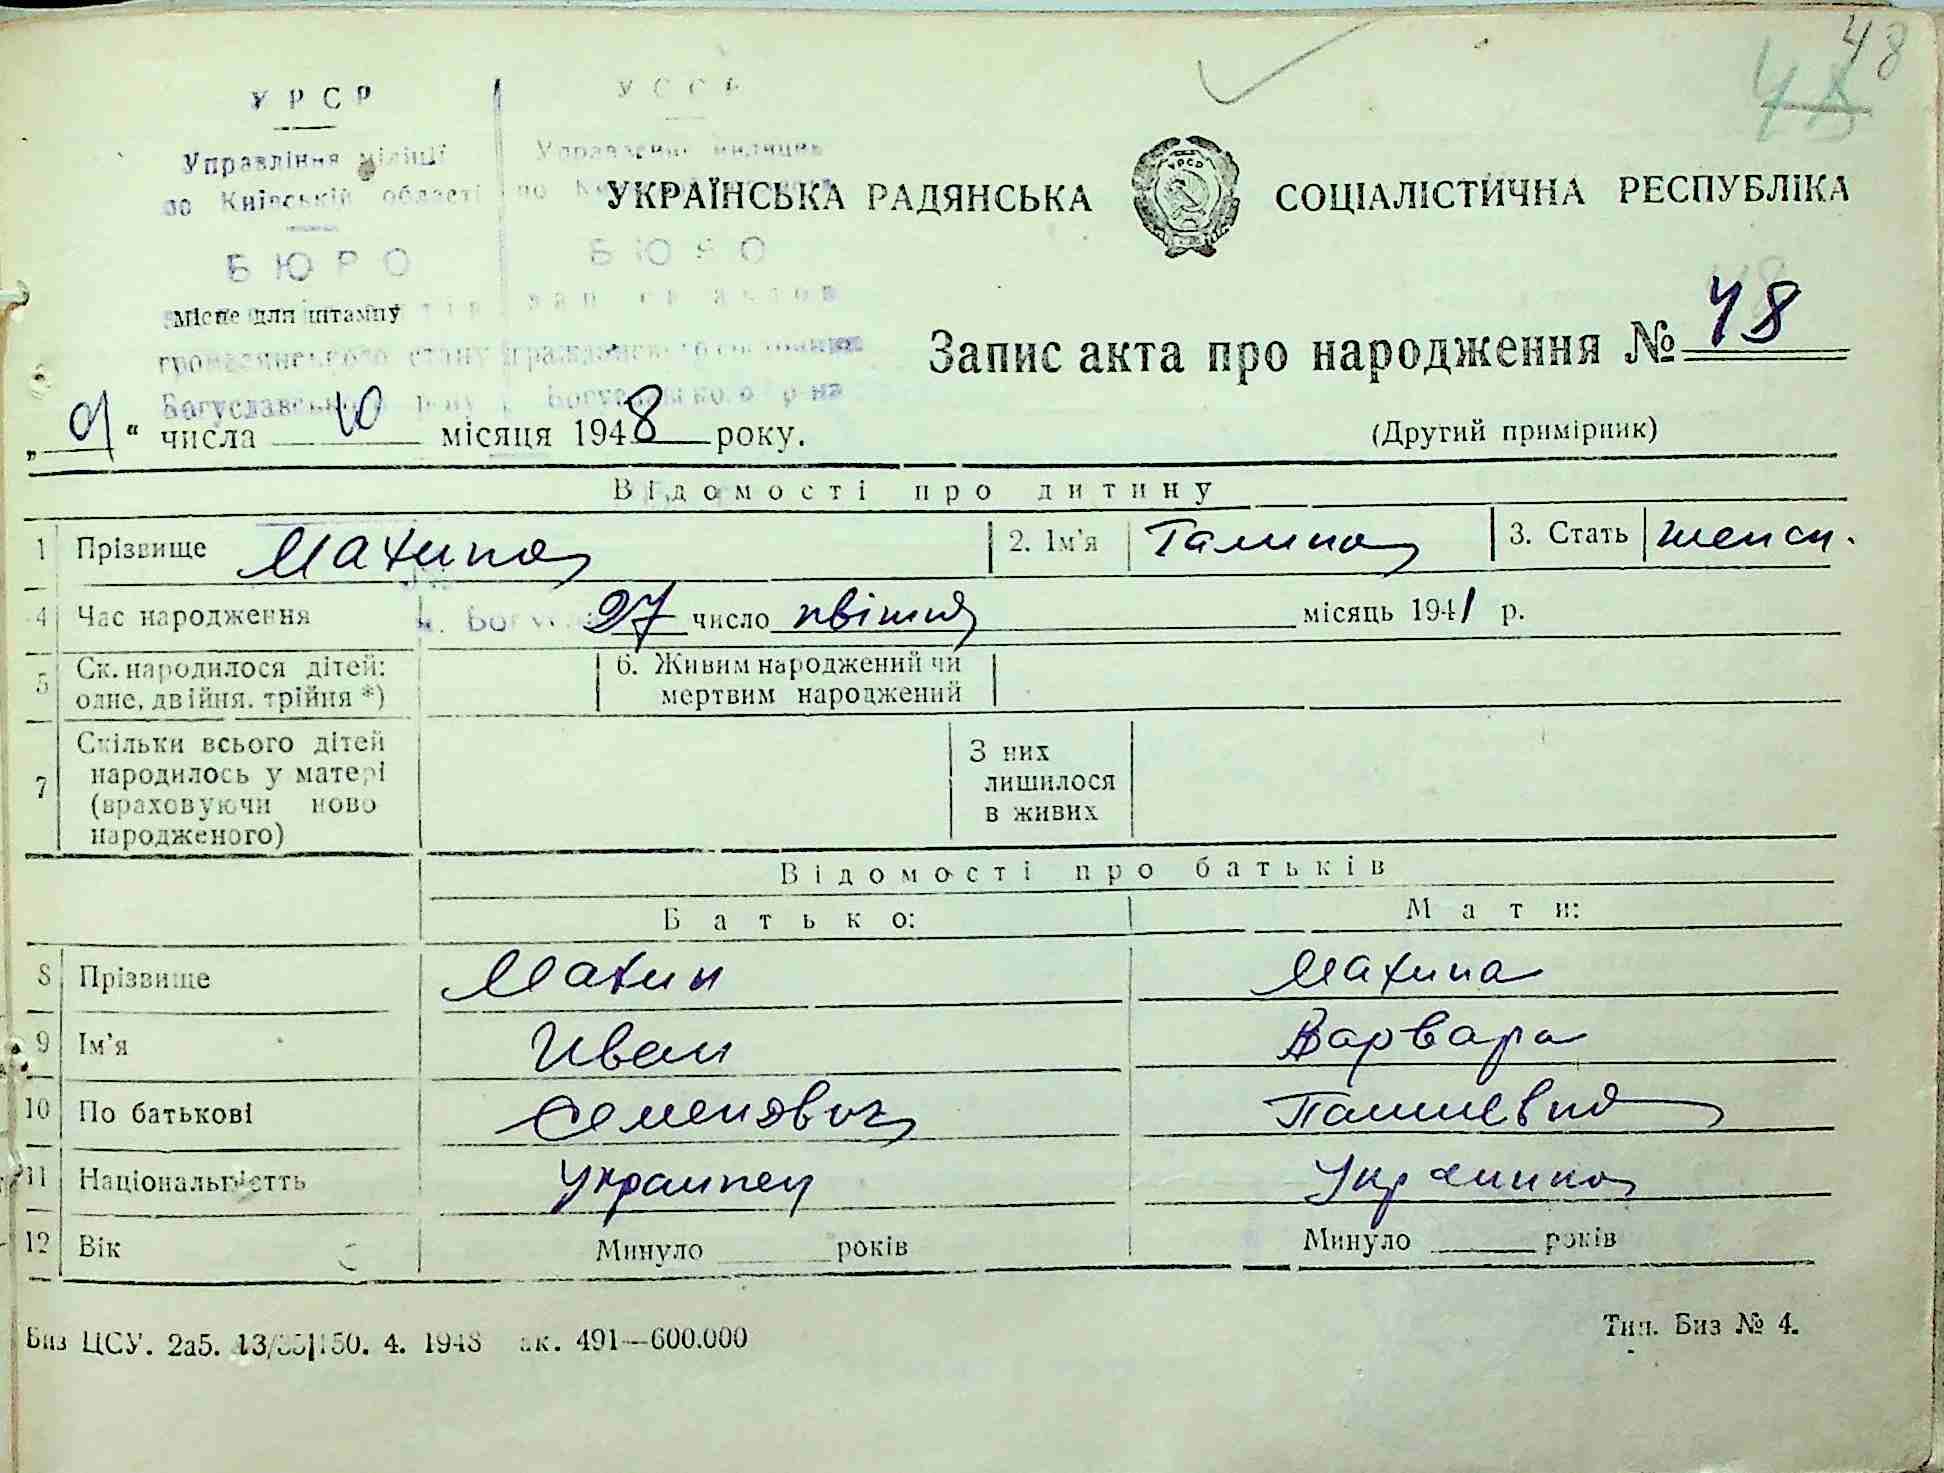 48
48
УРСР
УССР
Управління міліції
Управление милиции
по Київській області
УКРАЇНСЬКА РАДЯНСЬКА СОЦІАЛІСТИЧНА РЕСПУБЛІКА
БЮРО
БЮРО
Місце для штампу
громадянського стану
гражданского состояния
Богуславського р-ну
Богуславского р-на
Запис акта про народження № 48
„ 9 “ числа 10 місяця 1948 року.
(Другий примірник)
Відомості про дитину
1 Прізвище Махина 2. Ім'я Галина 3. Стать женск.
4 Час народження 27 число квітня місяць 1941 р.
5 Ск. народилося дітей: одне, двійня, трійня *) 6. Живим народжений чи мертвим народжений
7 Скільки всього дітей народилось у матері (враховуючи ново народженого) З них лишилося в живих
Відомості про батьків
Батько: Мати:
8 Прізвище Махин Махина
9 Ім'я Иван Варвара
10 По батькові Семенович
11 Національністть Украинец Украинка
12 Вік Минуло років Минуло років
Биз ЦСУ. 2а5. 4. 1948 491—600.000
Тип. Биз № 4.